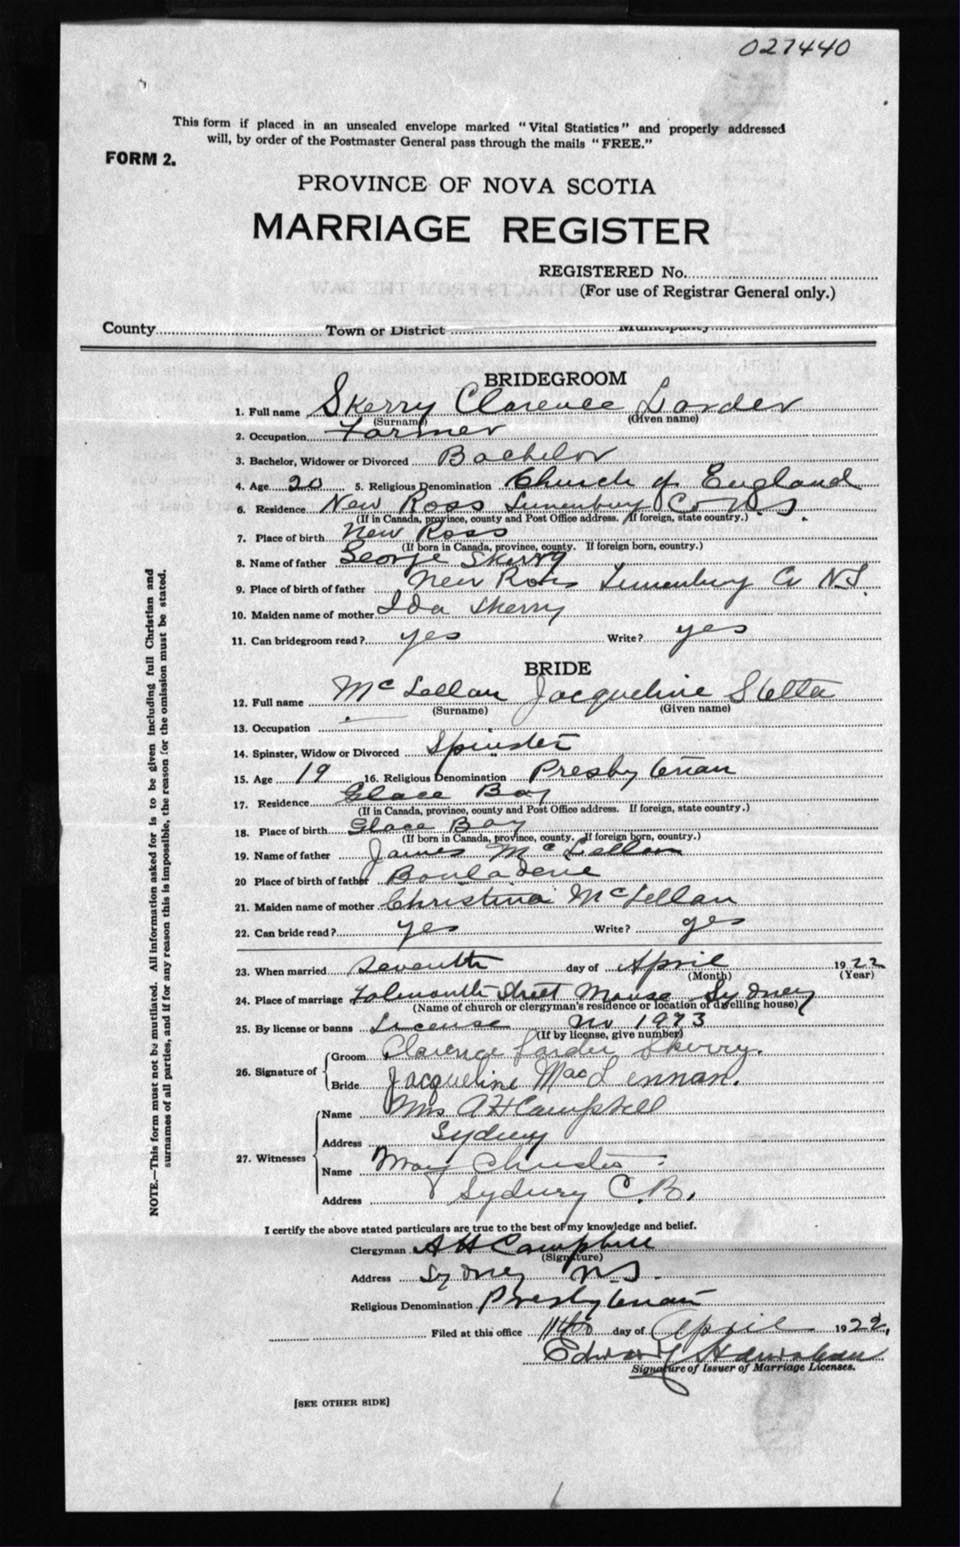 027440
This form if placed in an unsealed envelope marked "Vital Statistics" and properly addressed
will, by order of the Postmaster General pass through the mails "FREE."
FORM 2.
PROVINCE OF NOVA SCOTIA
MARRIAGE REGISTER
REGISTERED No.
(For use of Registrar General only.)
County Town or District Municipality
BRIDEGROOM
1. Full name Skerry Clarence Larder
(Surname) (Given name)
2. Occupation Farmer
3. Bachelor, Widower or Divorced Bachelor
4. Age 20 5. Religious Denomination Church of England
6. Residence New Ross Lunenburg Co N.S.
(If in Canada, province, county and Post Office address. If foreign, state country.)
7. Place of birth New Ross
(If born in Canada, province, county. If foreign born, country.)
8. Name of father George Skerry
9. Place of birth of father New Ross Lunenburg Co N.S.
10. Maiden name of mother Ida Skerry
11. Can bridegroom read? yes Write? yes
BRIDE
12. Full name McLellan Jacqueline Stella
(Surname) (Given name)
13. Occupation
14. Spinster, Widow or Divorced Spinster
15. Age 19 16. Religious Denomination Presbyterian
17. Residence Glace Bay
(If in Canada, province, county and Post Office address. If foreign, state country.)
18. Place of birth Glace Bay
(If born in Canada, province, county. If foreign born, country.)
19. Name of father James McLellan
20 Place of birth of father Bouladerie
21. Maiden name of mother Christina McLellan
22. Can bride read? yes Write? yes
23. When married seventh day of April 1922
(Month) (Year)
24. Place of marriage Falmouth Street Manse Sydney
(Name of church or clergyman's residence or location of dwelling house)
25. By license or banns License No 1973
(If by license, give number)
26. Signature of Groom Clarence Larder Skerry.
Bride Jacqueline MacLennan.
27. Witnesses Name Mrs A H Campbell
Address Sydney
Name May
Address Sydney C.B.
I certify the above stated particulars are true to the best of my knowledge and belief.
Clergyman A H Campbell
(Signature)
Address Sydney N.S.
Religious Denomination Presbyterian
Filed at this office 11th day of April 1922,
Edward
Signature of Issuer of Marriage Licenses.
[SEE OTHER SIDE]
NOTE.—This form must not be mutilated. All information asked for is to be given including full Christian and
surnames of all parties, and if for any reason this is impossible, the reason for the omission must be stated.